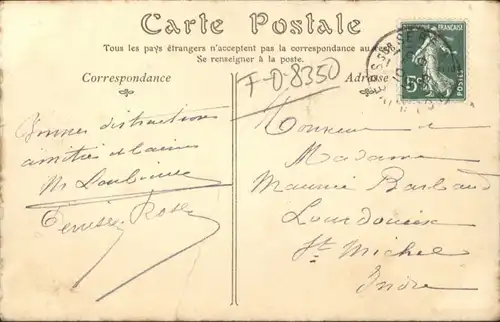 Carte Postale
Tous les pays étrangers n'acceptent pas la correspondance au
Se renseigner à la poste.
Correspondance
Adresse
F-D-8350
FRANÇAISE
5c
POSTES
Bonnes distractions
amitiés et
M
Denise Rose
Monsieur et
Madame
Maurice Barbaud
Lourdoueix
St Michel
Indre